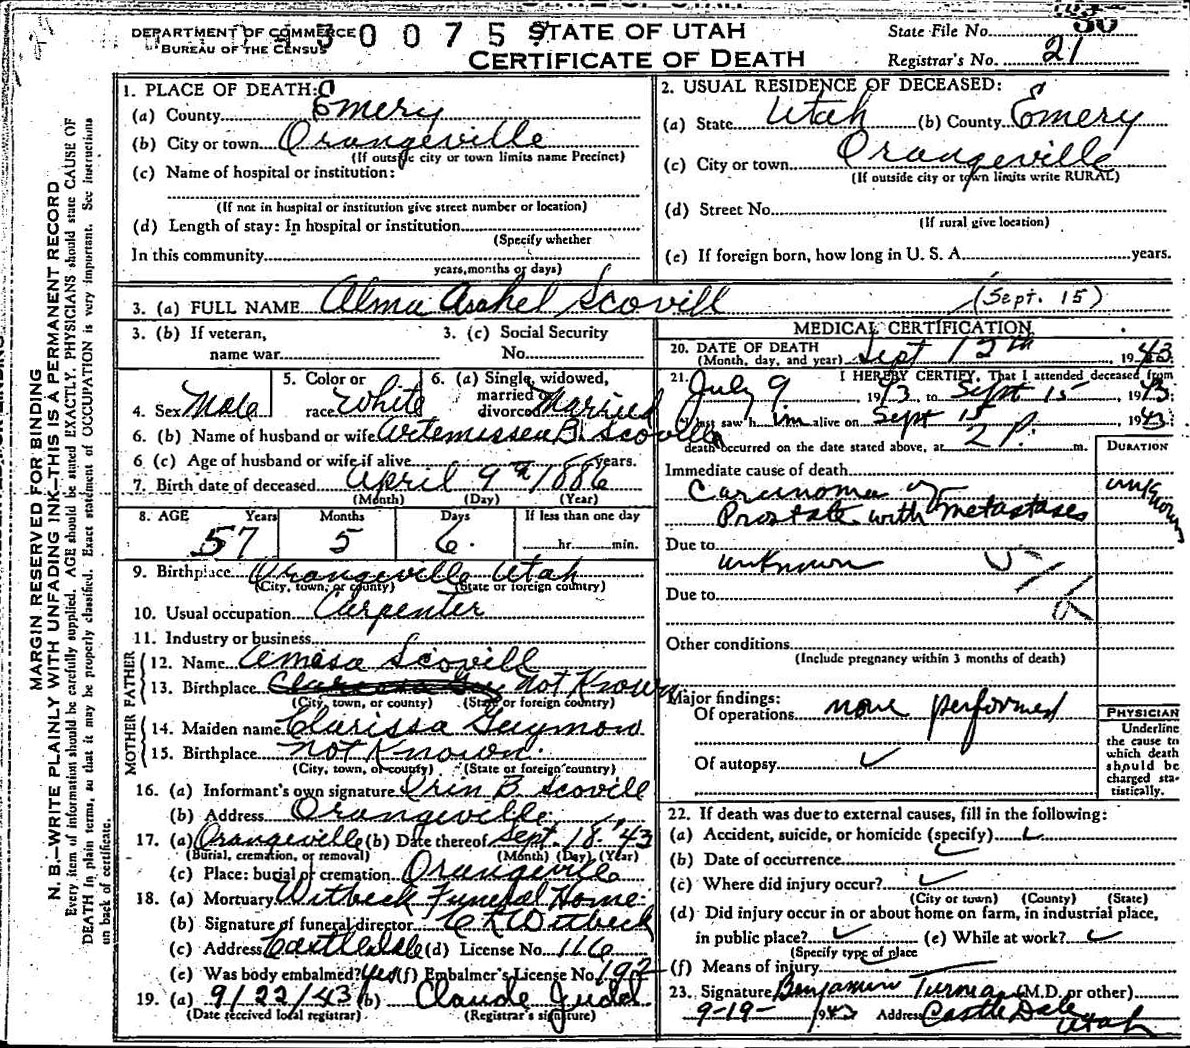 STATE OF UTAH
DEPARTMENT OF COMMERCE
BUREAU OF THE CENSUS
30075
STATE OF UTAH
CERTIFICATE OF DEATH
State File No. 30
Registrar's No. 21
MARGIN RESERVED FOR BINDING
N. B.—WRITE PLAINLY WITH UNFADING INK—THIS IS A PERMANENT RECORD
Every item of information should be carefully supplied. AGE should be stated EXACTLY. PHYSICIANS should state CAUSE OF
DEATH in plain terms, so that it may be properly classified. Exact statement of OCCUPATION is very important. See instructions
on back of certificate.
1. PLACE OF DEATH:
(a) County Emery
(b) City or town Orangeville
(If outside city or town limits name Precinct)
(c) Name of hospital or institution:
(If not in hospital or institution give street number or location)
(d) Length of stay: In hospital or institution
(Specify whether
In this community
years, months or days)
2. USUAL RESIDENCE OF DECEASED:
(a) State Utah (b) County Emery
(c) City or town Orangeville
(If outside city or town limits write RURAL)
(d) Street No.
(If rural give location)
(e) If foreign born, how long in U. S. A. years.
3. (a) FULL NAME Alma Asahel Scovill (Sept. 15)
3. (b) If veteran,
name war
3. (c) Social Security
No.
4. Sex Male
5. Color or
race White
6. (a) Single, widowed,
married or
divorced Married
6. (b) Name of husband or wife B. Scovill
6 (c) Age of husband or wife if alive years.
7. Birth date of deceased April 9th 1886
(Month) (Day) (Year)
8. AGE Years Months Days If less than one day
57 5 6 hr. min.
9. Birthplace Orangeville Utah
(City, town, or county) (State or foreign country)
10. Usual occupation Carpenter
11. Industry or business
FATHER
12. Name Amasa Scovill
13. Birthplace Not Known
(City, town, or county) (State or foreign country)
MOTHER
14. Maiden name Clarissa Guymon
15. Birthplace Not Known
(City, town, or county) (State or foreign country)
16. (a) Informant's own signature Orin B. Scovill
(b) Address Orangeville
17. (a) Orangeville (b) Date thereof Sept. 18. '43
(Burial, cremation, or removal) (Month) (Day) (Year)
(c) Place: burial or cremation Orangeville
18. (a) Mortuary Witbeck Funeral Home
(b) Signature of funeral director Wittbeck
(c) Address Castledale (d) License No. 116
(e) Was body embalmed? Yes (f) Embalmer's License No. 192
19. (a) 9/22/43 (b) Claude Judd
(Date received local registrar) (Registrar's signature)
MEDICAL CERTIFICATION
20. DATE OF DEATH
(Month, day, and year) Sept 12th, 1943
21. I HEREBY CERTIFY, That I attended deceased from
July 9, 1943, to Sept 15, 1943;
I last saw h im alive on Sept 15, 1943;
death occurred on the date stated above, at 2 P. m.
DURATION
Immediate cause of death
Carcinoma of
Prostate with metastases
unknown
Due to unknown
Due to
Other conditions
(Include pregnancy within 3 months of death)
Major findings:
Of operations none performed
Of autopsy
PHYSICIAN
Underline
the cause to
which death
should be
charged sta-
tistically.
22. If death was due to external causes, fill in the following:
(a) Accident, suicide, or homicide (specify)
(b) Date of occurrence
(c) Where did injury occur?
(City or town) (County) (State)
(d) Did injury occur in or about home on farm, in industrial place,
in public place? (e) While at work?
(Specify type of place
(f) Means of injury
23. Signature Benjamin Turman (M.D. or other)
9-19- 1943 Address Castle Dale
Utah